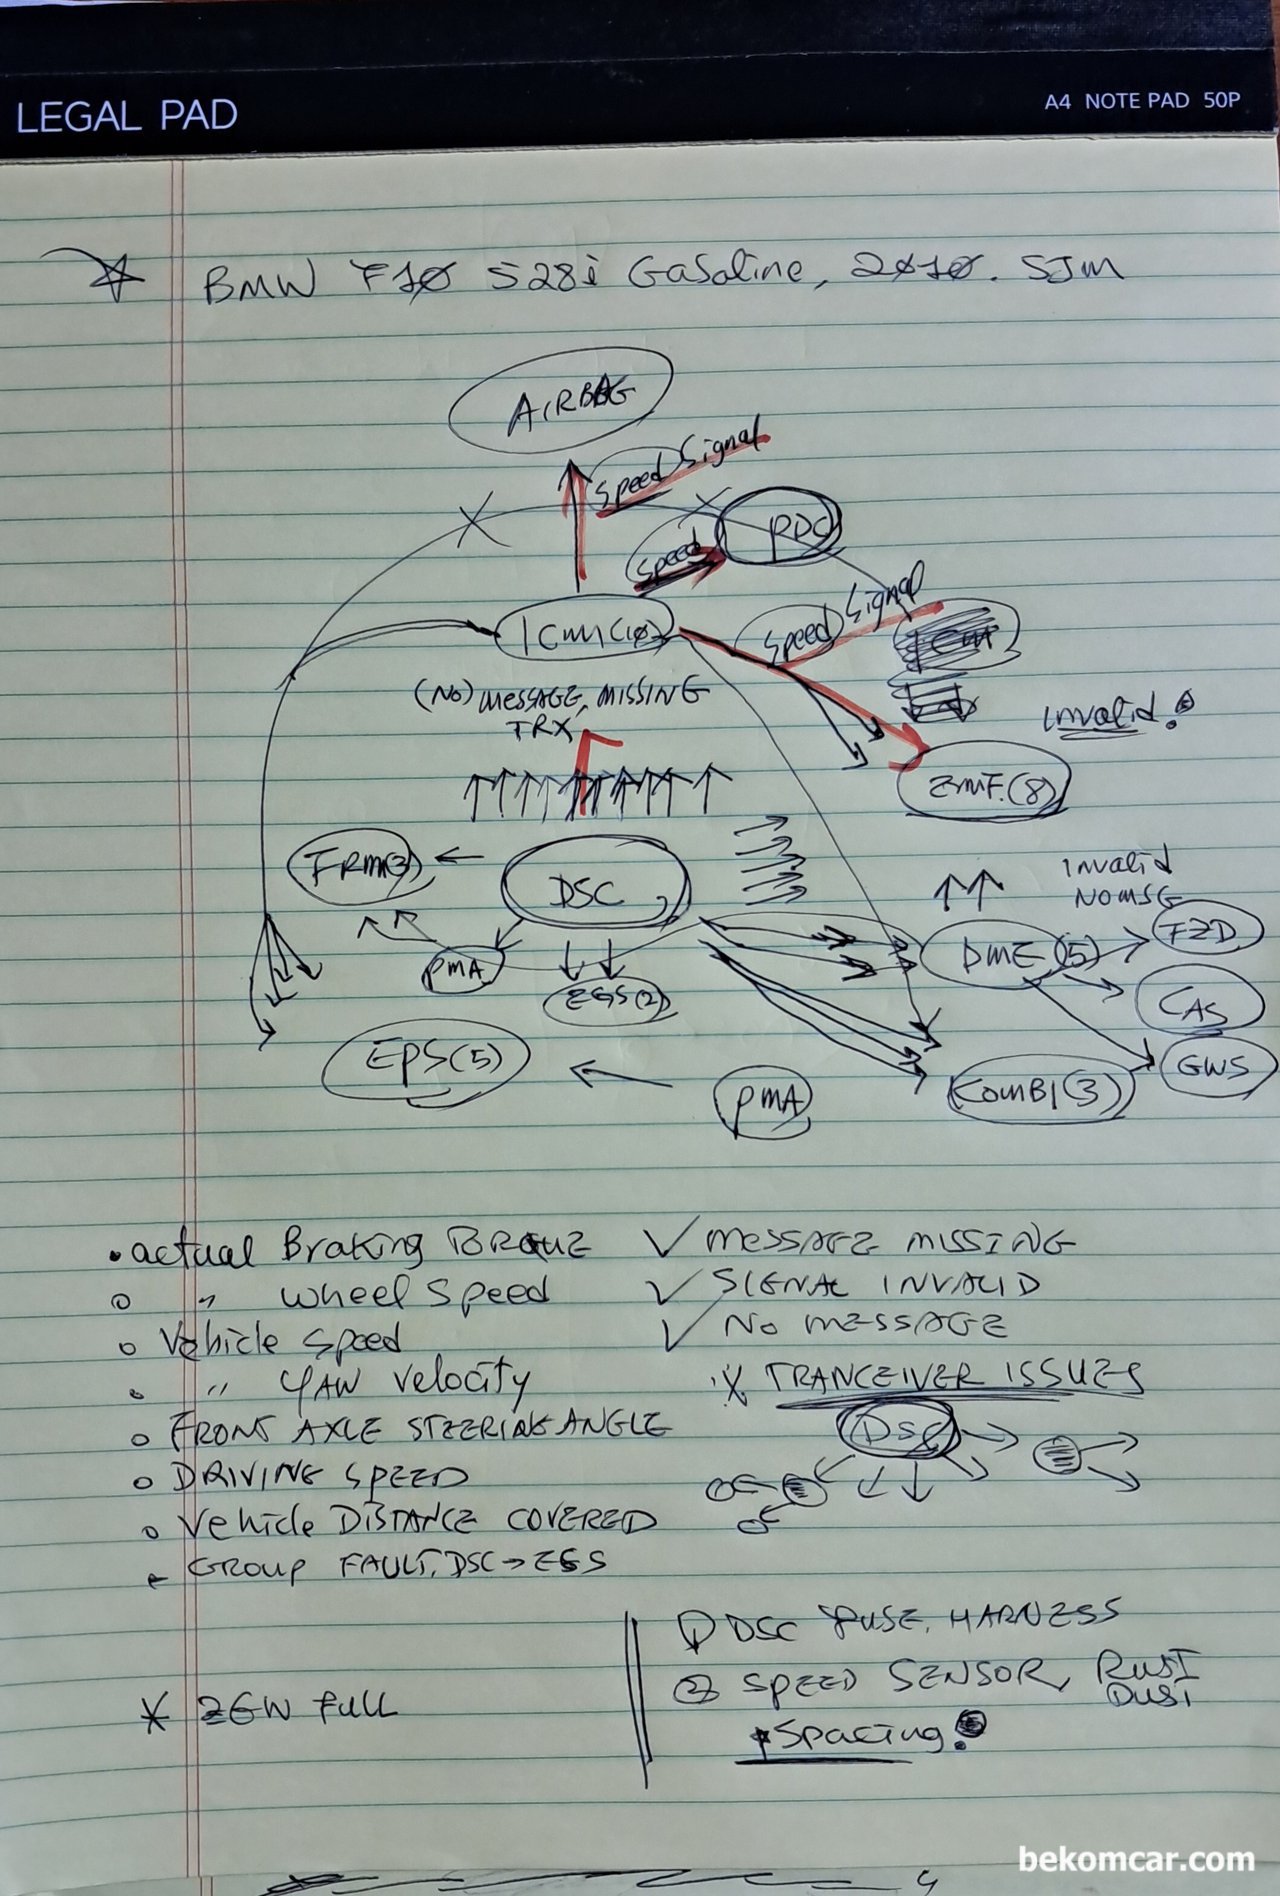 LEGAL PAD
A4 NOTE PAD 50P
BMW F10 528i Gasoline, 2010. SJM
AIRBAG
Speed Signal
PDC
Speed
ICM(10)
Speed Signal
(No) MESSAGE, MISSING
TRX
Invalid!
ZMF.(8)
FRM(3)
DSC
Invalid
NO MSG
FZD
PMA
DME(5)
EGS(2)
CAS
EPS(5)
GWS
PMA
KOMBI(3)
• actual Braking TORQUE
✓ MESSAGE MISSING
o " wheel Speed
✓ SIGNAL INVALID
o Vehicle Speed
✓ NO MESSAGE
o " YAW velocity
※ TRANCEIVER ISSUES
o FRONT AXLE STEERING ANGLE
DSC
o DRIVING SPEED
o Vehicle DISTANCE COVERED
- GROUP FAULT, DSC → EGS
① DSC FUSE, HARNESS
② SPEED SENSOR, RUST
DUST
* ZGW FULL
Spacing!
bekomcar.com